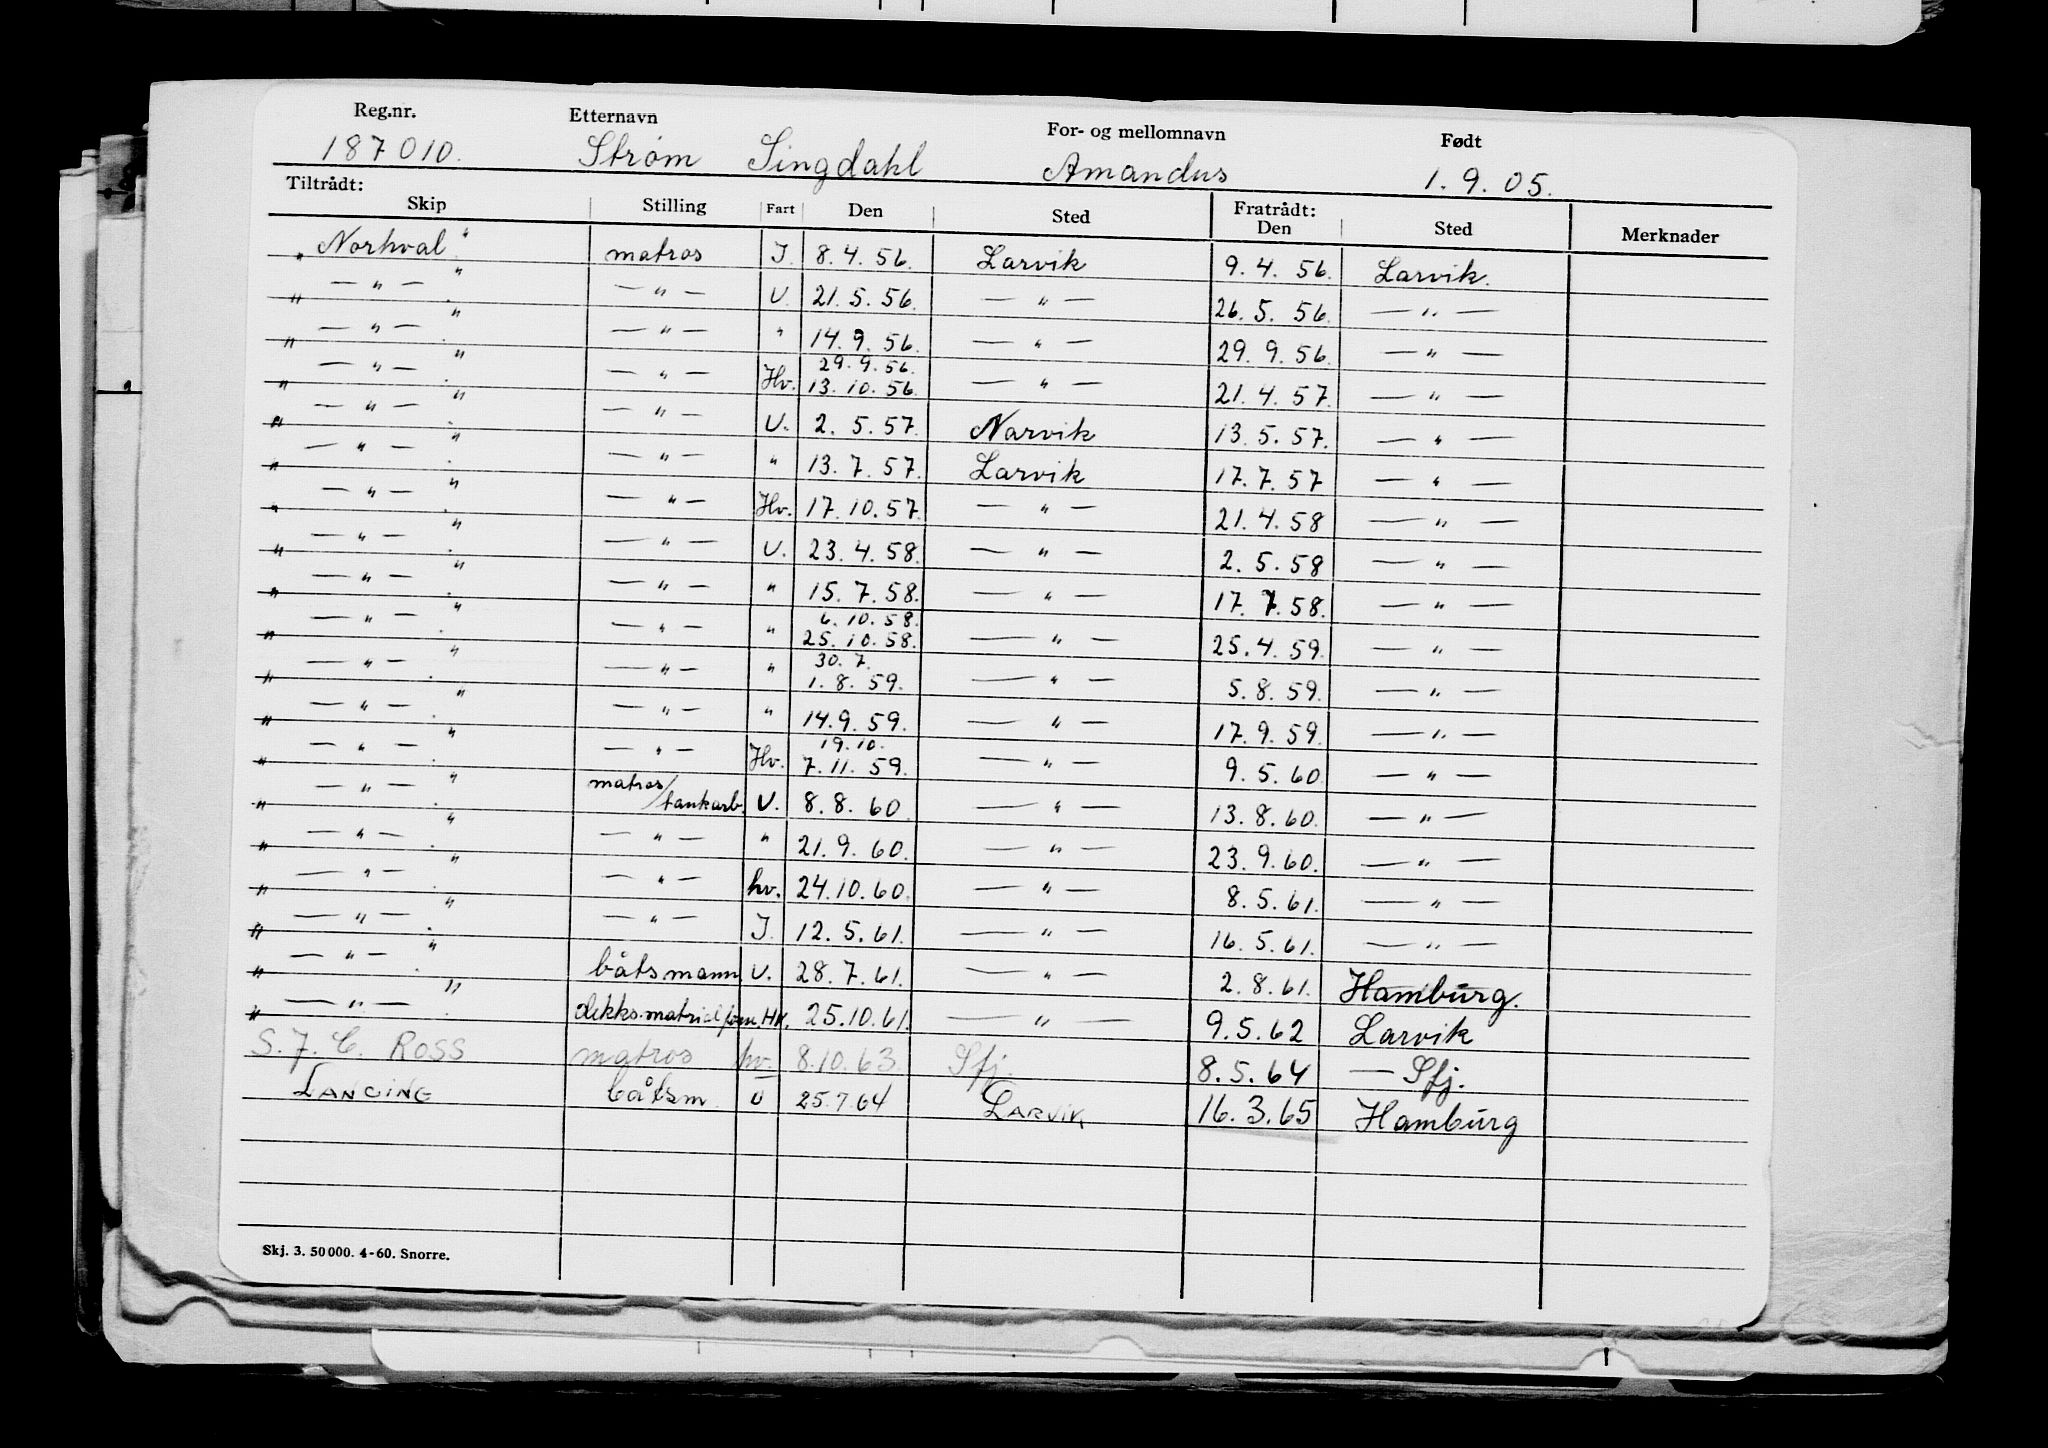 Reg.nr. Etternavn For- og mellomnavn Født
187010. Strøm Singdahl Amandus 1.9.05.
Tiltrådt: Fratrådt:
Skip Stilling Fart Den Sted Den Sted Merknader
„ Norhval " matros I. 8.4.56. Larvik 9.4.56. Larvik.
„ — „ — " — „ — U. 21.5.56. — „ — 26.5.56. — „ —
„ — „ — " — „ — „ 14.9.56. — „ — 29.9.56. — „ —
29.9.56.
„ — „ — " — „ — Hv. 13.10.56. — „ — 21.4.57. — „ —
„ — „ — " — „ — U. 2.5.57. Narvik 13.5.57. — „ —
„ — „ — " — „ — „ 13.7.57. Larvik 17.7.57 — „ —
„ — „ — " — „ — Hv. 17.10.57. — „ — 21.4.58 — „ —
„ — „ — " — „ — U. 23.4.58. — „ — 2.5.58 — „ —
„ — „ — " — „ — „ 15.7.58. — „ — 17.7.58. — „ —
6.10.58.
„ — „ — " — „ — „ 25.10.58. — „ — 25.4.59. — „ —
30.7.
„ — „ — " — „ — „ 1.8.59. — „ — 5.8.59. — „ —
„ — „ — " — „ — „ 14.9.59. — „ — 17.9.59. — „ —
19.10.
„ — „ — " — „ — Hv. 7.11.59. — „ — 9.5.60 — „ —
„ — „ — " matros/tankarb. U. 8.8.60 — „ — 13.8.60. — „ —
„ — „ — " — „ — „ 21.9.60. — „ — 23.9.60. — „ —
„ — „ — " — „ — hv. 24.10.60. — „ — 8.5.61. — „ —
„ — „ — " — „ — I. 12.5.61. — „ — 16.5.61. — „ —
„ — „ — " båtsmann U. 28.7.61. — „ — 2.8.61. Hamburg.
„ — „ — " HV. 25.10.61. — „ — 9.5.62 Larvik
S. J. C. ROSS matros hv. 8.10.63. Sfj. 8.5.64 — Sfj.
LANCING båtsm U 25.7.64 LARVIK 16.3.65 Hamburg
Skj. 3. 50 000. 4-60. Snorre.